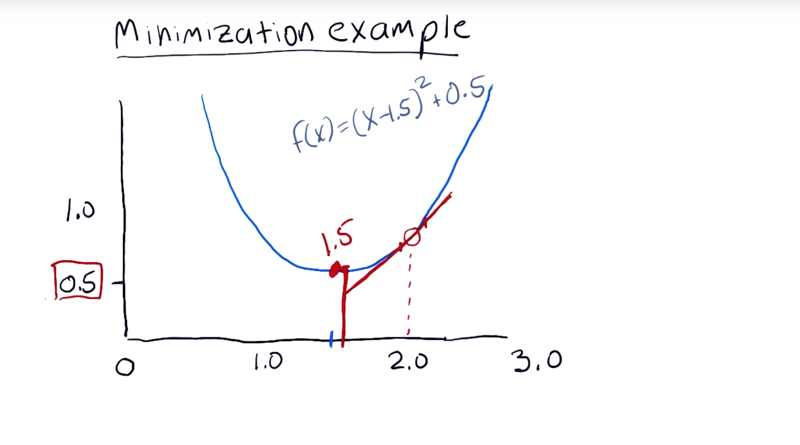 Minimization example
f(x)=(x-1.5)²+0.5
1.0
1.5
0.5
0
1.0
2.0
3.0